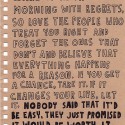 MORNING WITH REGRETS,
SO LOVE THE PEOPLE WHO
TREAT YOU RIGHT AND
FORGET THE ONES THAT
DON'T AND BELIEVE THAT
EVERYTHING HAPPENS
FOR A REASON. IF YOU GET
A CHANCE, TAKE IT. IF IT
CHANGES YOUR LIFE, LET
IT. NOBODY SAID THAT IT'D
BE EASY, THEY JUST PROMISED
IT WOULD BE WORTH IT